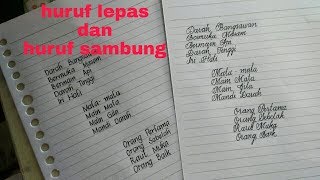 huruf lepas
dan
huruf sambung
Darah Bangsawan
Bermuka Masam
Bermain Api
Darah Tinggi
Ini Hati
Mata-mata
Main Mata
Main Gila
Mandi Darah
Orang Pertama
Orang Sebelah
Raut Muka
Orang Baik
Darah Bangsawan
Bermuka Masam
Bermain Api
Darah Tinggi
Hati
Mata-mata
Main Mata
Main Gila
Mandi Darah
Orang Pertama
Orang Sebelah
Raut Muka
Orang Baik